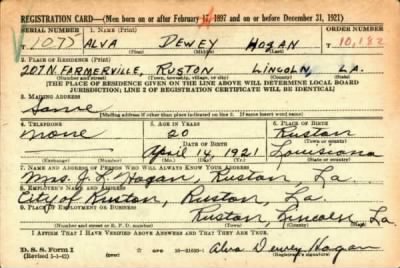 REGISTRATION CARD—(Men born on or after February 17, 1897 and on or before December 31, 1921)
SERIAL NUMBER 1. NAME (Print) ORDER NUMBER
ALVA DEWEY HOGAN 10,182
(First) (Middle) (Last)
2. PLACE OF RESIDENCE (Print)
207 N. FARMERVILLE, RUSTON LINCOLN, LA.
(Number and street) (Town, township, village, or city) (County) (State)
[THE PLACE OF RESIDENCE GIVEN ON THE LINE ABOVE WILL DETERMINE LOCAL BOARD
JURISDICTION; LINE 2 OF REGISTRATION CERTIFICATE WILL BE IDENTICAL]
3. MAILING ADDRESS
Same
[Mailing address if other than place indicated on line 2. If same insert word same]
4. TELEPHONE 5. AGE IN YEARS 6. PLACE OF BIRTH
none 20 Ruston
DATE OF BIRTH (Town or county)
April 14, 1921 Louisiana
(Exchange) (Number) (Mo.) (Day) (Yr.) (State or country)
7. NAME AND ADDRESS OF PERSON WHO WILL ALWAYS KNOW YOUR ADDRESS
Mrs. Hogan, Ruston, La.
8. EMPLOYER'S NAME AND ADDRESS
City of Ruston, Ruston, La.
9. PLACE OF EMPLOYMENT OR BUSINESS
Ruston, Lincoln, La.
(Number and street or R. F. D. number) (Town) (County) (State)
I AFFIRM THAT I HAVE VERIFIED ABOVE ANSWERS AND THAT THEY ARE TRUE.
D. S. S. Form 1 Alva Dewey Hogan